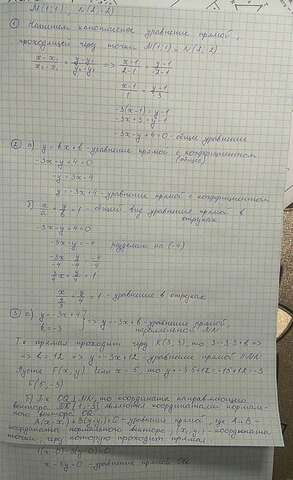 M(1; 1), N(2; 2)
① Напишем каноническое уравнение прямой,
проходящей через точки M(1; 1) и N(2; 2)
x-x₁/x₂-x₁ = y-y₁/y₂-y₁ => x-1/2-1 = y-1/-2-1
x-1/1 = y-1/-3
-3(x-1) = y-1
-3x+3 = y-1
-3x-y+4=0 - общее уравнение
② а) y=kx+b - уравнение прямой с коэффициентом
(общее)
-3x-y+4=0
-y=3x-4
y=-3x+4 - уравнение прямой с коэффициентом
б) x/a + y/b = 1 - общий вид уравнения прямой в
отрезках
-3x-y+4=0
-3x-y=-4 разделим на (-4)
-3x/-4 - y/-4 = -4/-4
3x/4 + y/4 = 1
- уравнение в отрезках
③ а) y=-3x+4
k=-3
=> y=-3x+b - уравнение прямой,
Т.к. прямая проходит через K(3; 3), то 3=-3·3+b =>
=> b=12 => y=-3x+12 - уравнение прямой
Пусть F(x; y). Если x=5, то y=-3·5+12=-15+12=-3
F(5; -3)
то координаты направляющего
вектора
являются координатами нормаль-
ного вектора
A(x-x₁)+B(y-y₁)=0 - уравнение прямой, где A и B -
координаты нормального вектора, (x₁; y₁) - координаты
точки, через которую проходит прямая
1(x-0)-3(y-0)=0
x-3y=0 - уравнение прямой